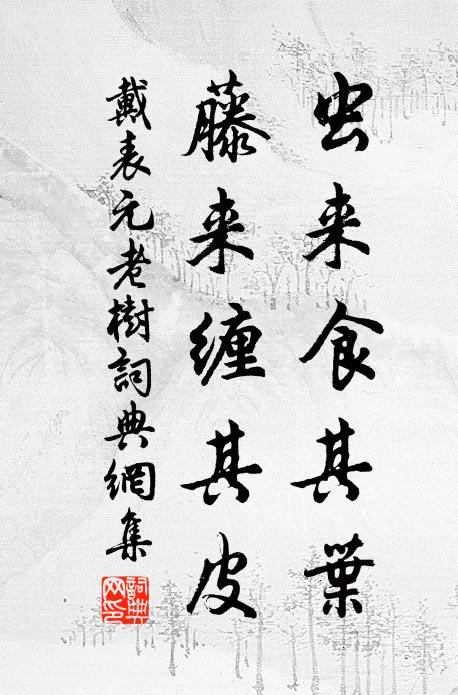 虫来食其葉
藤来缠其皮
戴表元老樹詞典網集
詞典网印